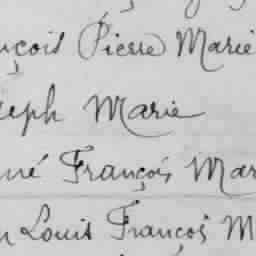 nçois Pierre Marie
seph Marie
né François Mar
n Louis François M